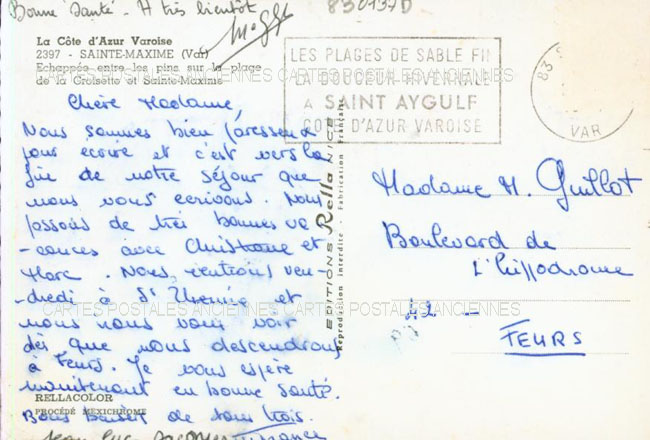 Bonne Santé - A très bientôt
830137D
La Côte d'Azur Varoise
2397 - SAINTE-MAXIME (Var)
Echappée entre les pins sur la plage
de la Croisette et Sainte-Maxime
LES PLAGES DE SABLE FIN
LA DOUCEUR HIVERNALE
A SAINT AYGULF
COTE D'AZUR VAROISE
83
VAR
CARTES POSTALES ANCIENNES CARTES POSTALES ANCIENNES
Chère Madame,
Nous sommes bien paresseux
pour ecrire et c'est vers la
fin de notre séjour que
nous vous ecrivons. Nous
passons de très bonnes va
-cances avec Christiane et
Marc. Nous rentrons ven-
dredi à St Etienne et
nous irons vous voir
dès que nous descendrons
à Feurs. Je vous espère
maintenant en bonne santé.
Bons baisers de tous trois.
Jean Luc
EDITIONS Rella NICE
Reproduction interdite - Fabrication Française
Madame M. Guillot
Boulevard de
L'hippodrome
42 -
FEURS
CARTES POSTALES ANCIENNES CARTES POSTALES ANCIENNES
RELLACOLOR
PROCÉDÉ MEXICHROME